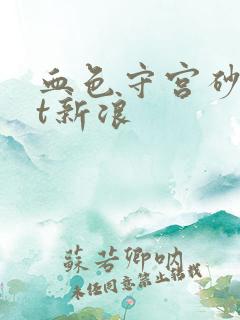 血色守宫砂
t新浪
苏若卿呐
未经同意禁止转载